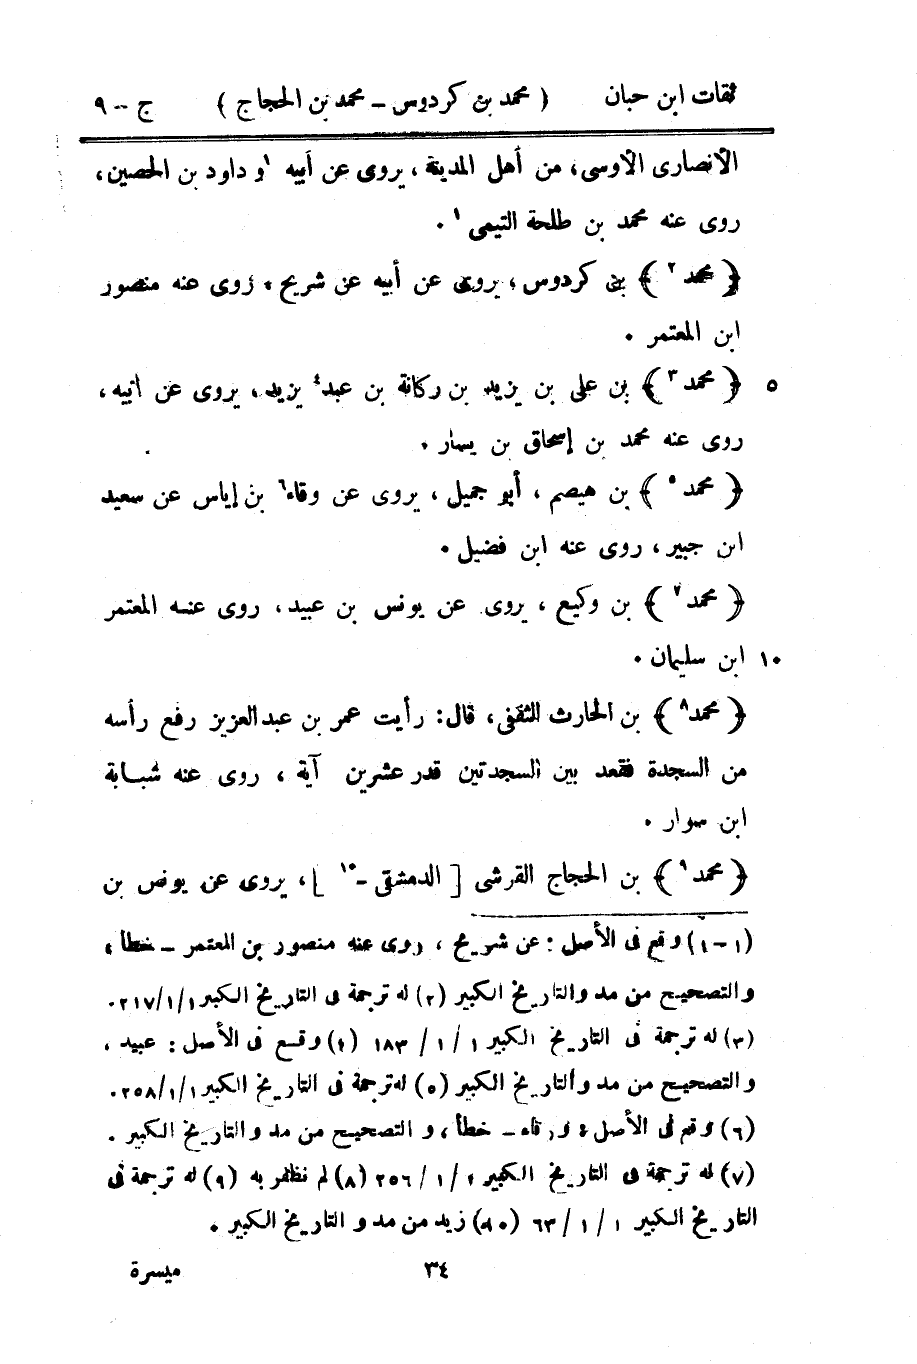 ثقات ابن حبان ( محمد بن كردوس - محمد بن الحجاج ) ج - ٩
الأنصارى الأوسى، من أهل المدينة، يروى عن أبيه ١و داود بن الحصين،
روى عنه محمد بن طلحة التيمى١ .
﴿ محمد٢ ﴾ بن كردوس، يروى عن أبيه عن شريح، روى عنه منصور
ابن المعتمر .
٥ ﴿ محمد٣ ﴾ بن على بن يزيد بن ركانة بن عبد٤ يزيد، يروى عن أبيه،
روى عنه محمد بن إسحاق بن يسار .
﴿ محمد٥ ﴾ بن هيصم، أبو جميل، يروى عن وقاء٦ بن إياس عن سعيد
ابن جبير، روى عنه ابن فضيل .
﴿ محمد٧ ﴾ بن وكيع، يروى عن يونس بن عبيد، روى عنه المعتمر
١٠ ابن سليمان .
﴿ محمد٨ ﴾ بن الحارث الثقفى، قال: رأيت عمر بن عبدالعزيز رفع رأسه
من السجدة فقعد بين السجدتين قدر عشرين آية، روى عنه شبابة
ابن سوار .
﴿ محمد٩ ﴾ بن الحجاج القرشى [ الدمشقى -١٠ ]، يروى عن يونس بن
(١-١) وقع فى الأصل: عن شريح، روى عنه منصور بن المعتمر - خطأ،
والتصحيح من مد والتاريخ الكبير (٢) له ترجمة فى التاريخ الكبير ١/١/٢١٧.
(٣) له ترجمة فى التاريخ الكبير ١/١/١٨٣ (٤) وقع فى الأصل: عبيد،
والتصحيح من مد والتاريخ الكبير (٥) له ترجمة فى التاريخ الكبير ١/١/٢٥٨.
(٦) وقع فى الأصل: ورقاء - خطأ، و التصحيح من مد و التاريخ الكبير .
(٧) له ترجمة فى التاريخ الكبير ١/١/٢٥٦ (٨) لم نظفر به (٩) له ترجمة فى
التاريخ الكبير ١/١/٦٣ (١٠) زيد من مد و التاريخ الكبير .
٣٤ ميسرة